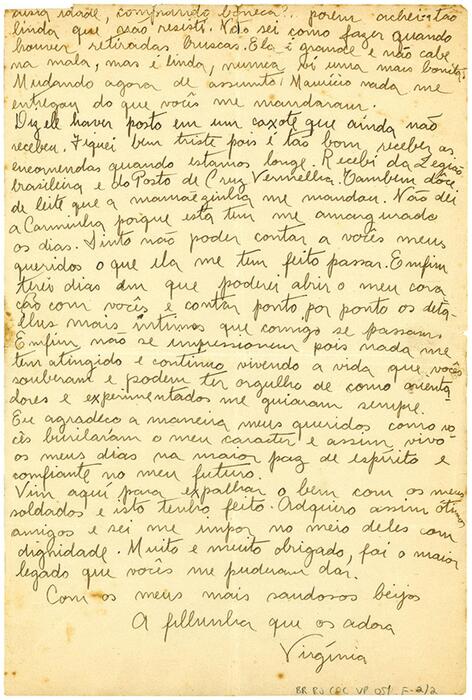 idade, comprando boneca?.. porem achei-a tão
linda que não resisti. Não sei como fazer quando
houver retiradas bruscas. Ela é grande e não cabe
na mala, mas é linda, nunca vi uma mais bonita.
Mudando agora de assunto: Mauricio nada me
entregou do que vocês me mandaram.
Diz ele haver posto em um caxote que ainda não
recebeu. Fiquei bem triste pois é tão bom receber as
encomendas quando estamos longe. Recebi da Legião
brasileira e do Posto de Cruz Vermelha. Tambem dôce
de leite que a mamãezinha me mandou. Não dei
a Carminha porque esta tem me amargurado
os dias. Sinto não poder contar a vocês meus
queridos o que ela me tem feito passar. Emfim
terei dias em que poderei abrir o meu cora
ção com vocês e contar ponto por ponto os deta
lhes mais intimos que comigo se passam.
Emfim não se impressionem pois nada me
tem atingido e continuo vivendo a vida que vocês
souberam e podem ter orgulho de como orienta
dores e experimentados me guiaram sempre.
Eu agradeco a maneira meus queridos como vo
cês burilaram o meu carater e assim vivo
os meus dias na maior paz de espírito e
confiante no meu futuro.
Vim aqui para espalhar o bem com os meus
soldados e isto tenho feito. Adquiro assim ótimos
amigos e sei me impor no meio deles com
dignidade. Muito e muito obrigado, foi o maior
legado que vocês me puderam dar.
Com os meus mais saudosos beijos
A filhinha que os adora
Virgínia
BR RJ COC VP 051 F-2/2